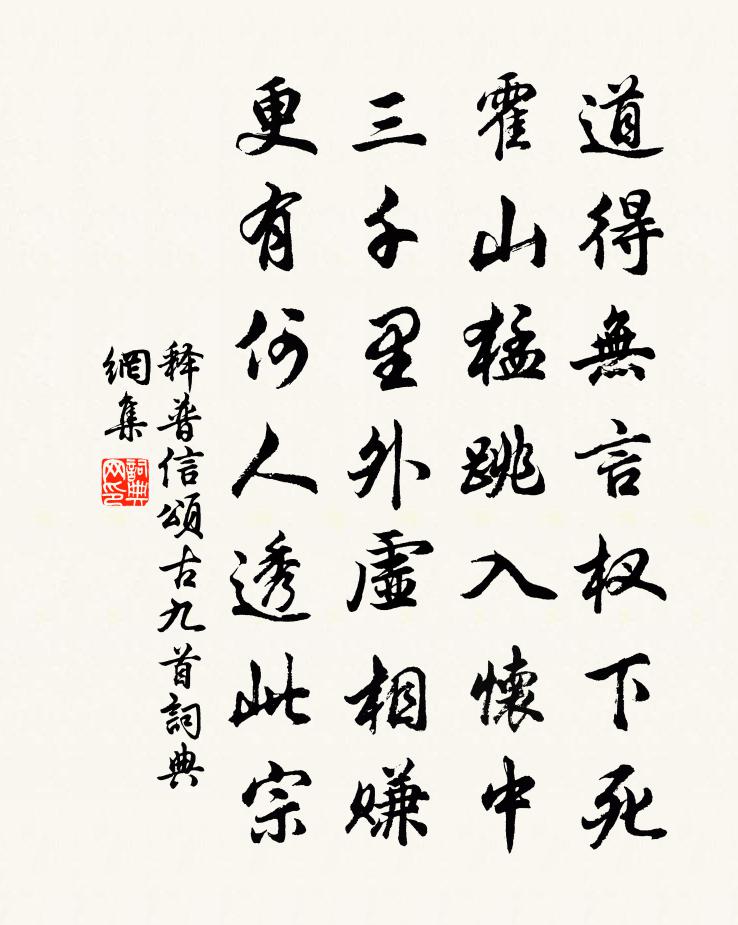 道得無言杈下死
霍山猛跳入懷中
三千里外虛相賺
更有何人透此宗
释普信頌古九首詞典
網集
詞典
网印